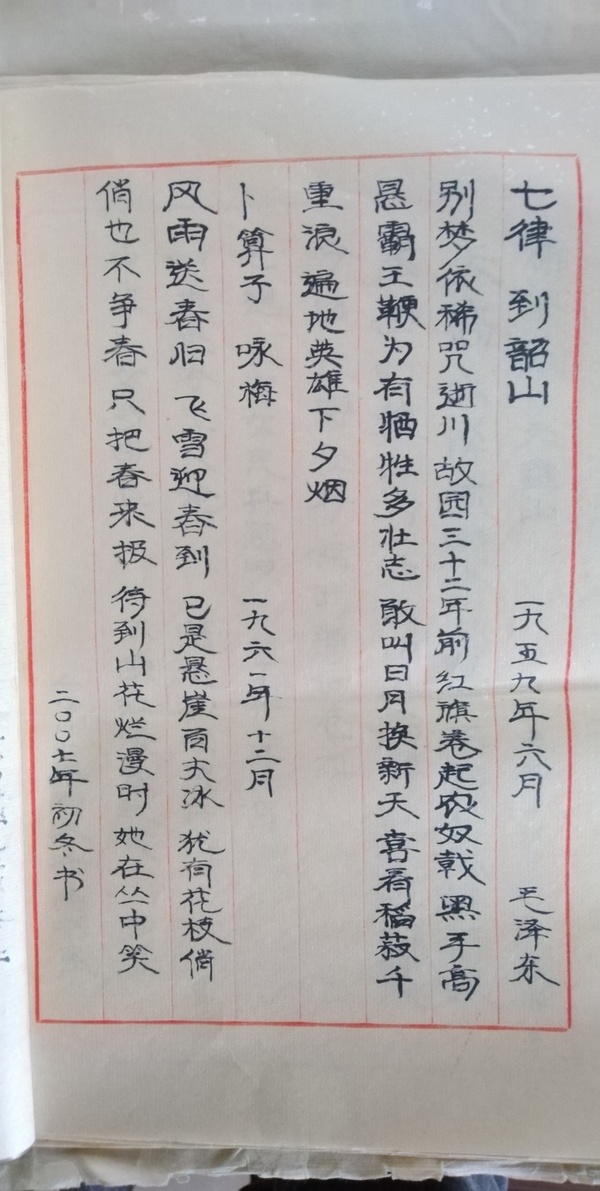 七律 到韶山 一九五九年六月 毛泽东
别梦依稀咒逝川 故园三十二年前 红旗卷起农奴戟 黑手高
悬霸王鞭 为有牺牲多壮志 敢叫日月换新天 喜看稻菽千
重浪 遍地英雄下夕烟
卜算子 咏梅 一九六一年十二月
风雨送春归 飞雪迎春到 已是悬崖百丈冰 犹有花枝俏
俏也不争春 只把春来报 待到山花烂漫时 她在丛中笑
二〇〇七年初冬书